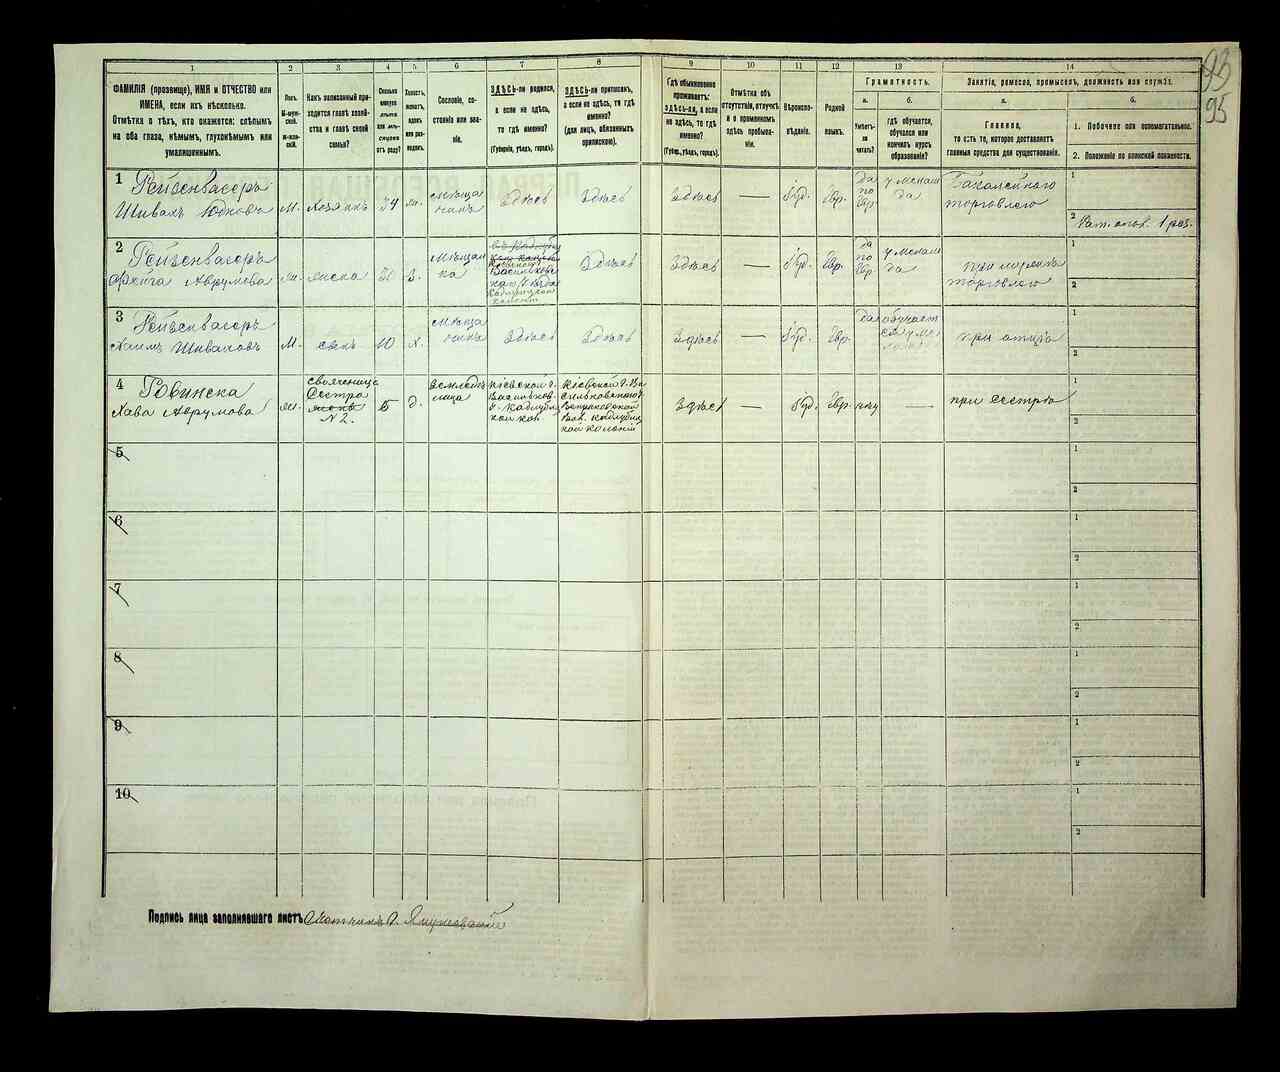 93
95
1
2
3
4
5
6
7
8
9
10
11
12
13
14
ФАМИЛІЯ (прозвище), ИМЯ и ОТЧЕСТВО или
ИМЕНА, если ихъ нѣсколько.
Отмѣтка о тѣхъ, кто окажется: слѣпымъ
на оба глаза, нѣмымъ, глухонѣмымъ или
умалишеннымъ.
Полъ.
М-муж-
ской.
Ж-жен-
скій.
Какъ записанный при-
ходится главѣ хозяй-
ства и главѣ своей
семьи?
Сколько
минуло
лѣтъ
или мѣ-
сяцевъ
отъ роду?
Холостъ,
женатъ,
вдовъ
или раз-
веденъ.
Сословіе, со-
стояніе или зва-
ніе.
ЗДѢСЬ-ли родился,
а если не здѣсь,
то гдѣ именно?
(Губернія, уѣздъ, городъ).
ЗДѢСЬ-ли приписанъ,
а если не здѣсь, то гдѣ
именно?
(для лицъ, обязанныхъ
припискою).
Гдѣ обыкновенно
проживаетъ:
ЗДѢСЬ-ли, а если
не здѣсь, то гдѣ
именно?
(Губерн., уѣздъ, городъ).
Отмѣтка объ
отсутствіи, отлучкѣ
и о временномъ
здѣсь пребыва-
ніи.
Вѣроиспо-
вѣданіе.
Родной
языкъ.
Грамотность.
а.
б.
Умѣетъ-
ли
читать?
гдѣ обучается,
обучался или
кончилъ курсъ
образованія?
Занятіе, ремесло, промыселъ, должность или служба.
а.
б.
Главное,
то есть то, которое доставляетъ
главныя средства для существованія.
1. Побочное или вспомогательное.
2. Положеніе по воинской повинности.
1 Рейзенвасеръ
Шивахъ Юдковъ М. хозяинъ 34 мѣща
нинъ Здѣсь Здѣсь Здѣсь — Іуд. Евр. да
по
Евр. у мелам
да Бакалейного
торговлею 1
2 Рат. опол. 1 раз.
2 Рейзенвасеръ
Фейга Аврумова жена 30 з. мѣщан
ка Кіевской
Васильковс
Кадлубицкой
Здѣсь Здѣсь — Іуд. Евр. да
по
Евр. у мелам
да при мужѣ
торговлею 1
2
3 Рейзенвасеръ
Хаимъ Шиваховъ М. сынъ 10 х. мѣща
нинъ Здѣсь Здѣсь Здѣсь — Іуд. Евр. да обучает
при отцѣ 1
2
4 Ровинска
Хава Аврумова свояченица
Сестра
N2. 15 д. земледѣ
лица Кіевской г.
Васильков.
Кадлубиц
кой кол Кіевской г. Ва
сильковского у
Вол. Кадлубиц
кой колоніи Здѣсь — Іуд. Евр. нѣт — при сестрѣ 1
2
5 1
2
6 1
2
7 1
2
8 1
2
9 1
2
10 1
2
Подпись лица заполнившаго листъ